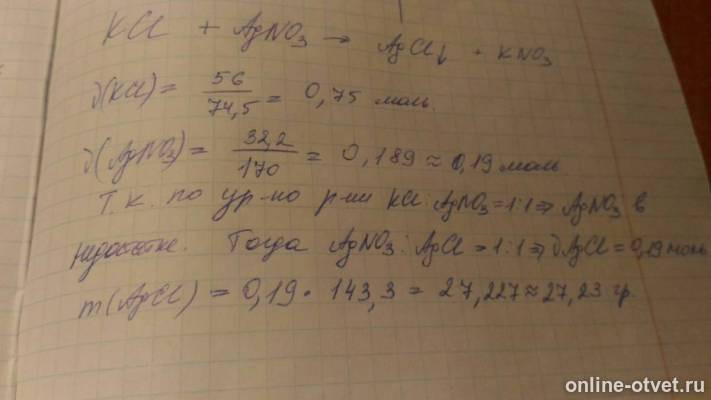 KCl + AgNO₃ → AgCl↓ + KNO₃
ν(KCl) = 56/74,5 = 0,75 моль.
ν(AgNO₃) = 32,2/170 = 0,189 ≈ 0,19 моль.
Т.к. по ур-ю р-ии KCl : AgNO₃ = 1:1 ⇒ AgNO₃ в
недостатке. Тогда AgNO₃ : AgCl = 1:1 ⇒ ν AgCl = 0,19 моль
m(AgCl) = 0,19 · 143,3 = 27,227 ≈ 27,23 гр.
online-otvet.ru